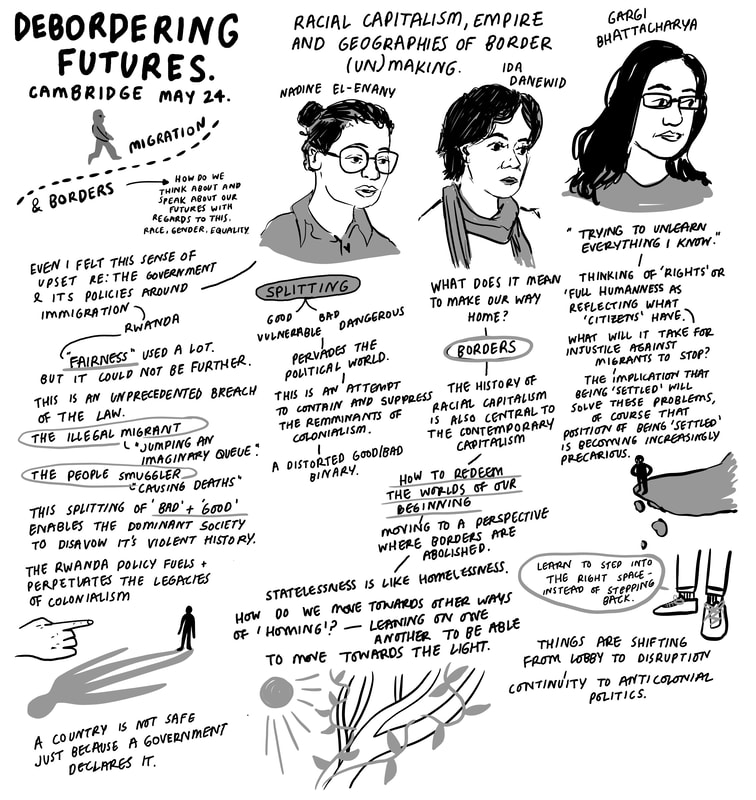 DEBORDERING
FUTURES.
CAMBRIDGE MAY 24.
RACIAL CAPITALISM, EMPIRE
AND GEOGRAPHIES OF BORDER
(UN)MAKING.
MIGRATION
& BORDERS
HOW DO WE
THINK ABOUT AND
SPEAK ABOUT OUR
FUTURES WITH
REGARDS TO THIS.
RACE, GENDER, EQUALITY
NADINE EL-ENANY
EVEN I FELT THIS SENSE OF
UPSET RE: THE GOVERNMENT
& ITS POLICIES AROUND
IMMIGRATION
RWANDA
"FAIRNESS" USED A LOT.
BUT IT COULD NOT BE FURTHER.
THIS IS AN UNPRECEDENTED BREACH
OF THE LAW.
THE ILLEGAL MIGRANT
"JUMPING AN
IMAGINARY QUEUE".
THE PEOPLE SMUGGLER
"CAUSING DEATHS"
THIS SPLITTING OF 'BAD' + 'GOOD'
ENABLES THE DOMINANT SOCIETY
TO DISAVOW IT'S VIOLENT HISTORY.
THE RWANDA POLICY FUELS +
PERPETUATES THE LEGACIES
OF COLONIALISM
A COUNTRY IS NOT SAFE
JUST BECAUSE A GOVERNMENT
DECLARES IT.
SPLITTING
GOOD BAD
VULNERABLE DANGEROUS
PERVADES THE
POLITICAL WORLD.
THIS IS AN ATTEMPT
TO CONTAIN AND SUPPRESS
THE REMMINANTS OF
COLONIALISM.
A DISTORTED GOOD/BAD
BINARY.
IDA
DANEWID
WHAT DOES IT MEAN
TO MAKE OUR WAY
HOME?
BORDERS
THE HISTORY OF
RACIAL CAPITALISM
IS ALSO CENTRAL TO
THE CONTEMPORARY
CAPITALISM
HOW TO REDEEM
THE WORLDS OF OUR
BEGINNING
MOVING TO A PERSPECTIVE
WHERE BORDERS ARE
ABOLISHED.
STATELESSNESS IS LIKE HOMELESSNESS.
HOW DO WE MOVE TOWARDS OTHER WAYS
OF 'HOMING'? — LEANING ON ONE
ANOTHER TO BE ABLE
TO MOVE TOWARDS THE LIGHT.
GARGI
BHATTACHARYA
"TRYING TO UNLEARN
EVERYTHING I KNOW."
THINKING OF 'RIGHTS' OR
'FULL HUMANNESS AS
REFLECTING WHAT
'CITIZENS' HAVE.
WHAT WILL IT TAKE FOR
INJUSTICE AGAINST
MIGRANTS TO STOP?
THE IMPLICATION THAT
BEING 'SETTLED' WILL
SOLVE THESE PROBLEMS,
OF COURSE THAT
POSITION OF BEING 'SETTLED'
IS BECOMING INCREASINGLY
PRECARIOUS.
LEARN TO STEP INTO
THE RIGHT SPACE -
INSTEAD OF STEPPING
BACK.
THINGS ARE SHIFTING
FROM LOBBY TO DISRUPTION
CONTINUITY TO ANTICOLONIAL
POLITICS.